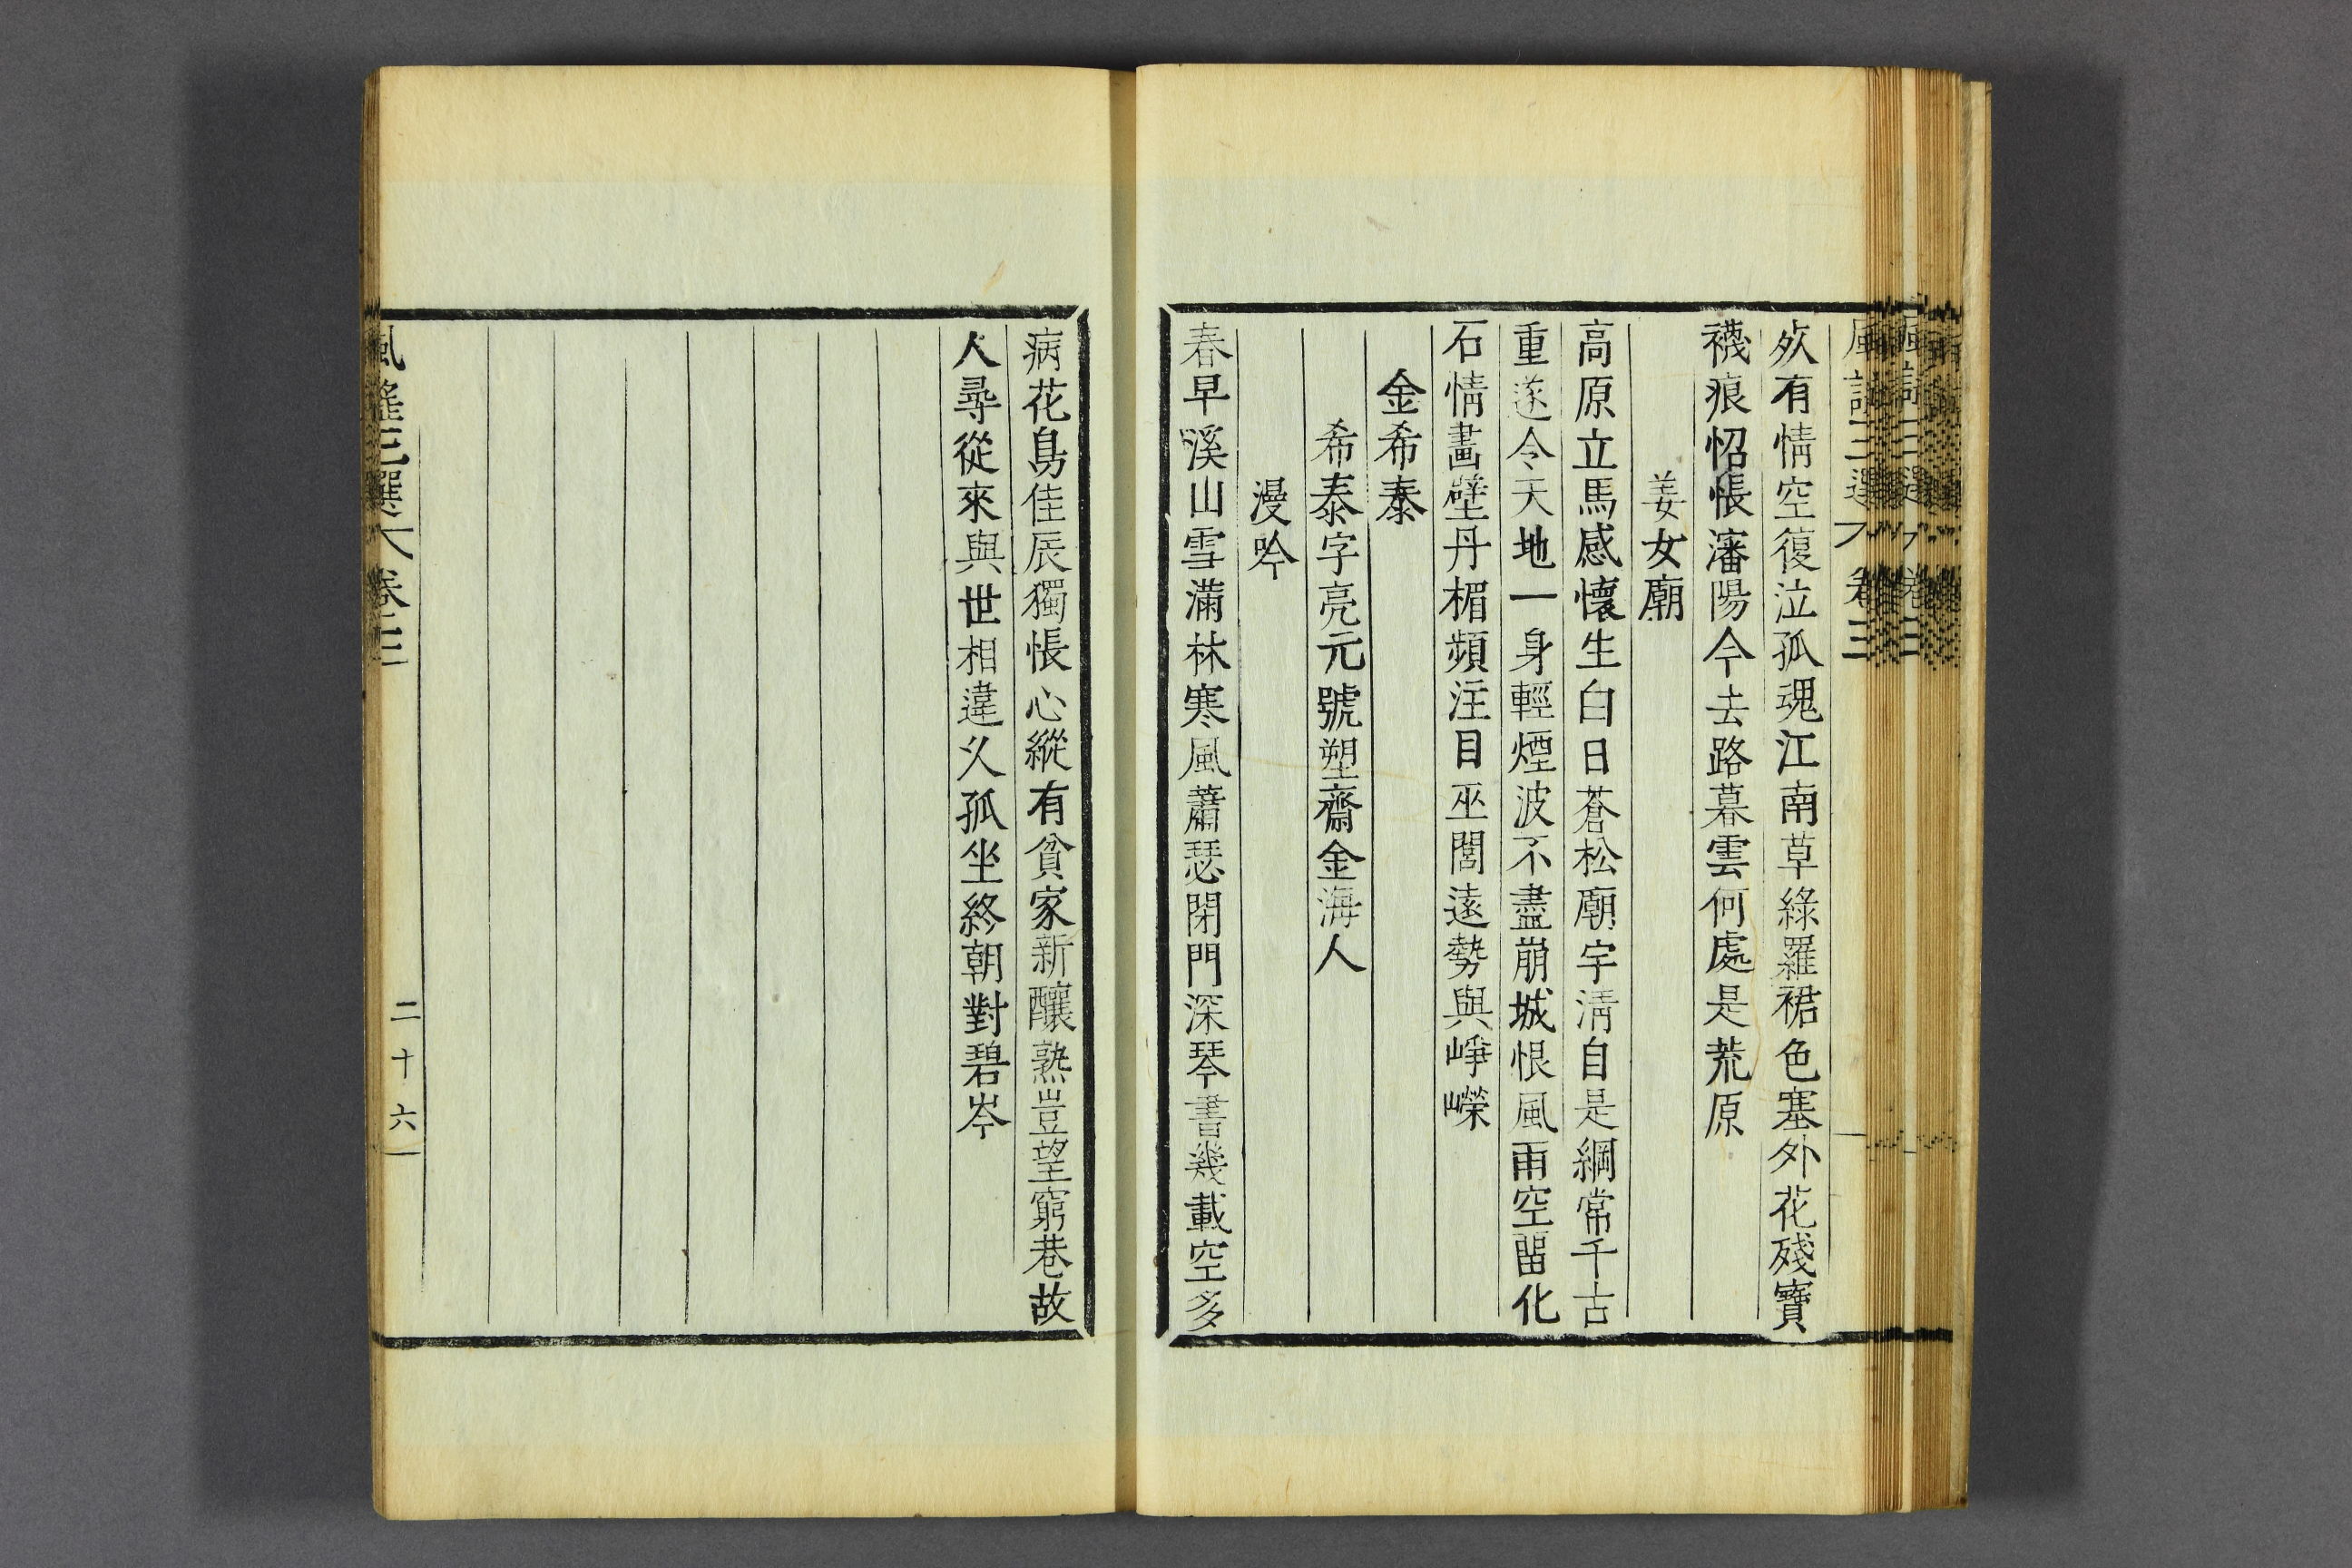 風謠三選 卷三
死有情空復泣孤魂江南草綠羅裙色塞外花殘寶
襪痕怊悵瀋陽今去路暮雲何處是荒原
姜女廟
高原立馬感懷生白日蒼松廟宇淸自是綱常千古
重遂令天地一身輕煙波不盡崩城恨風雨空留化
石情畫壁丹楣頻注目巫閭遠勢與崢嶸
金希泰
希泰字亮元號塑齋金海人
漫吟
春早溪山雪滿林寒風蕭瑟閉門深琴書幾載空多
病花鳥佳辰獨悵心縱有貧家新釀熟豈望窮巷故
人尋從來與世相違久孤坐終朝對碧岑
風謠三選 卷三
二十六